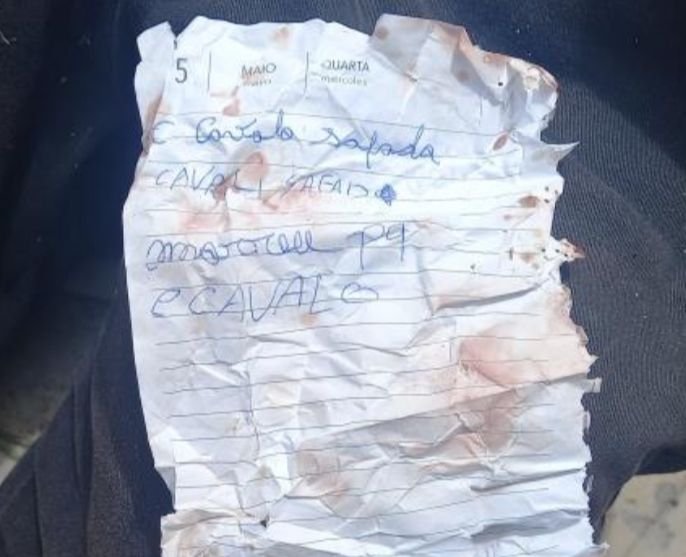 5 MAIO QUARTA
miércoles
c Cavala safada
CAVALI SAFADO
pq
e CAVALO